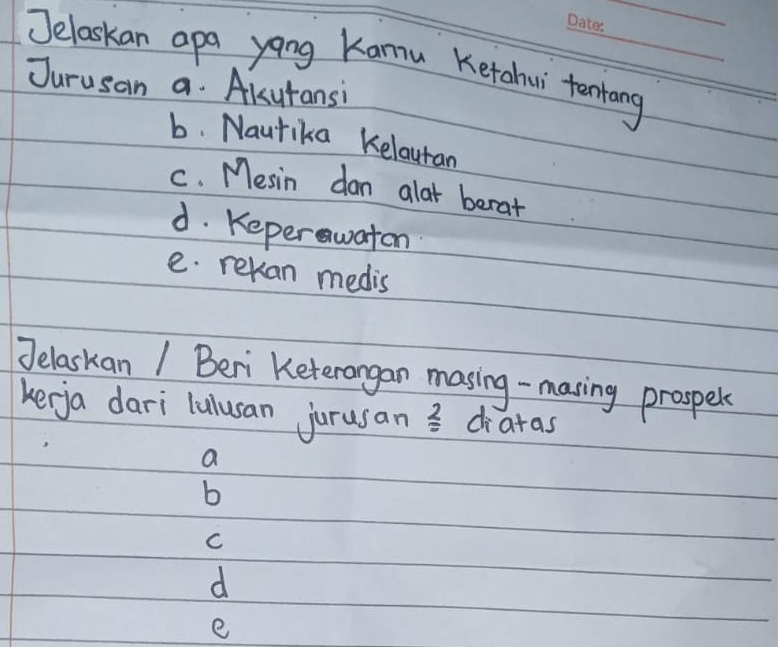 Date:
Jelaskan apa yang kamu Ketahui tentang
Jurusan a. Akutansi
b. Nautika Kelautan
c. Mesin dan alat berat
d. Keperawatan
e. rekan medis
Jelaskan / Beri Keterangan masing-masing prospek
kerja dari lulusan jurusan 2 diatas
a
b
c
d
e